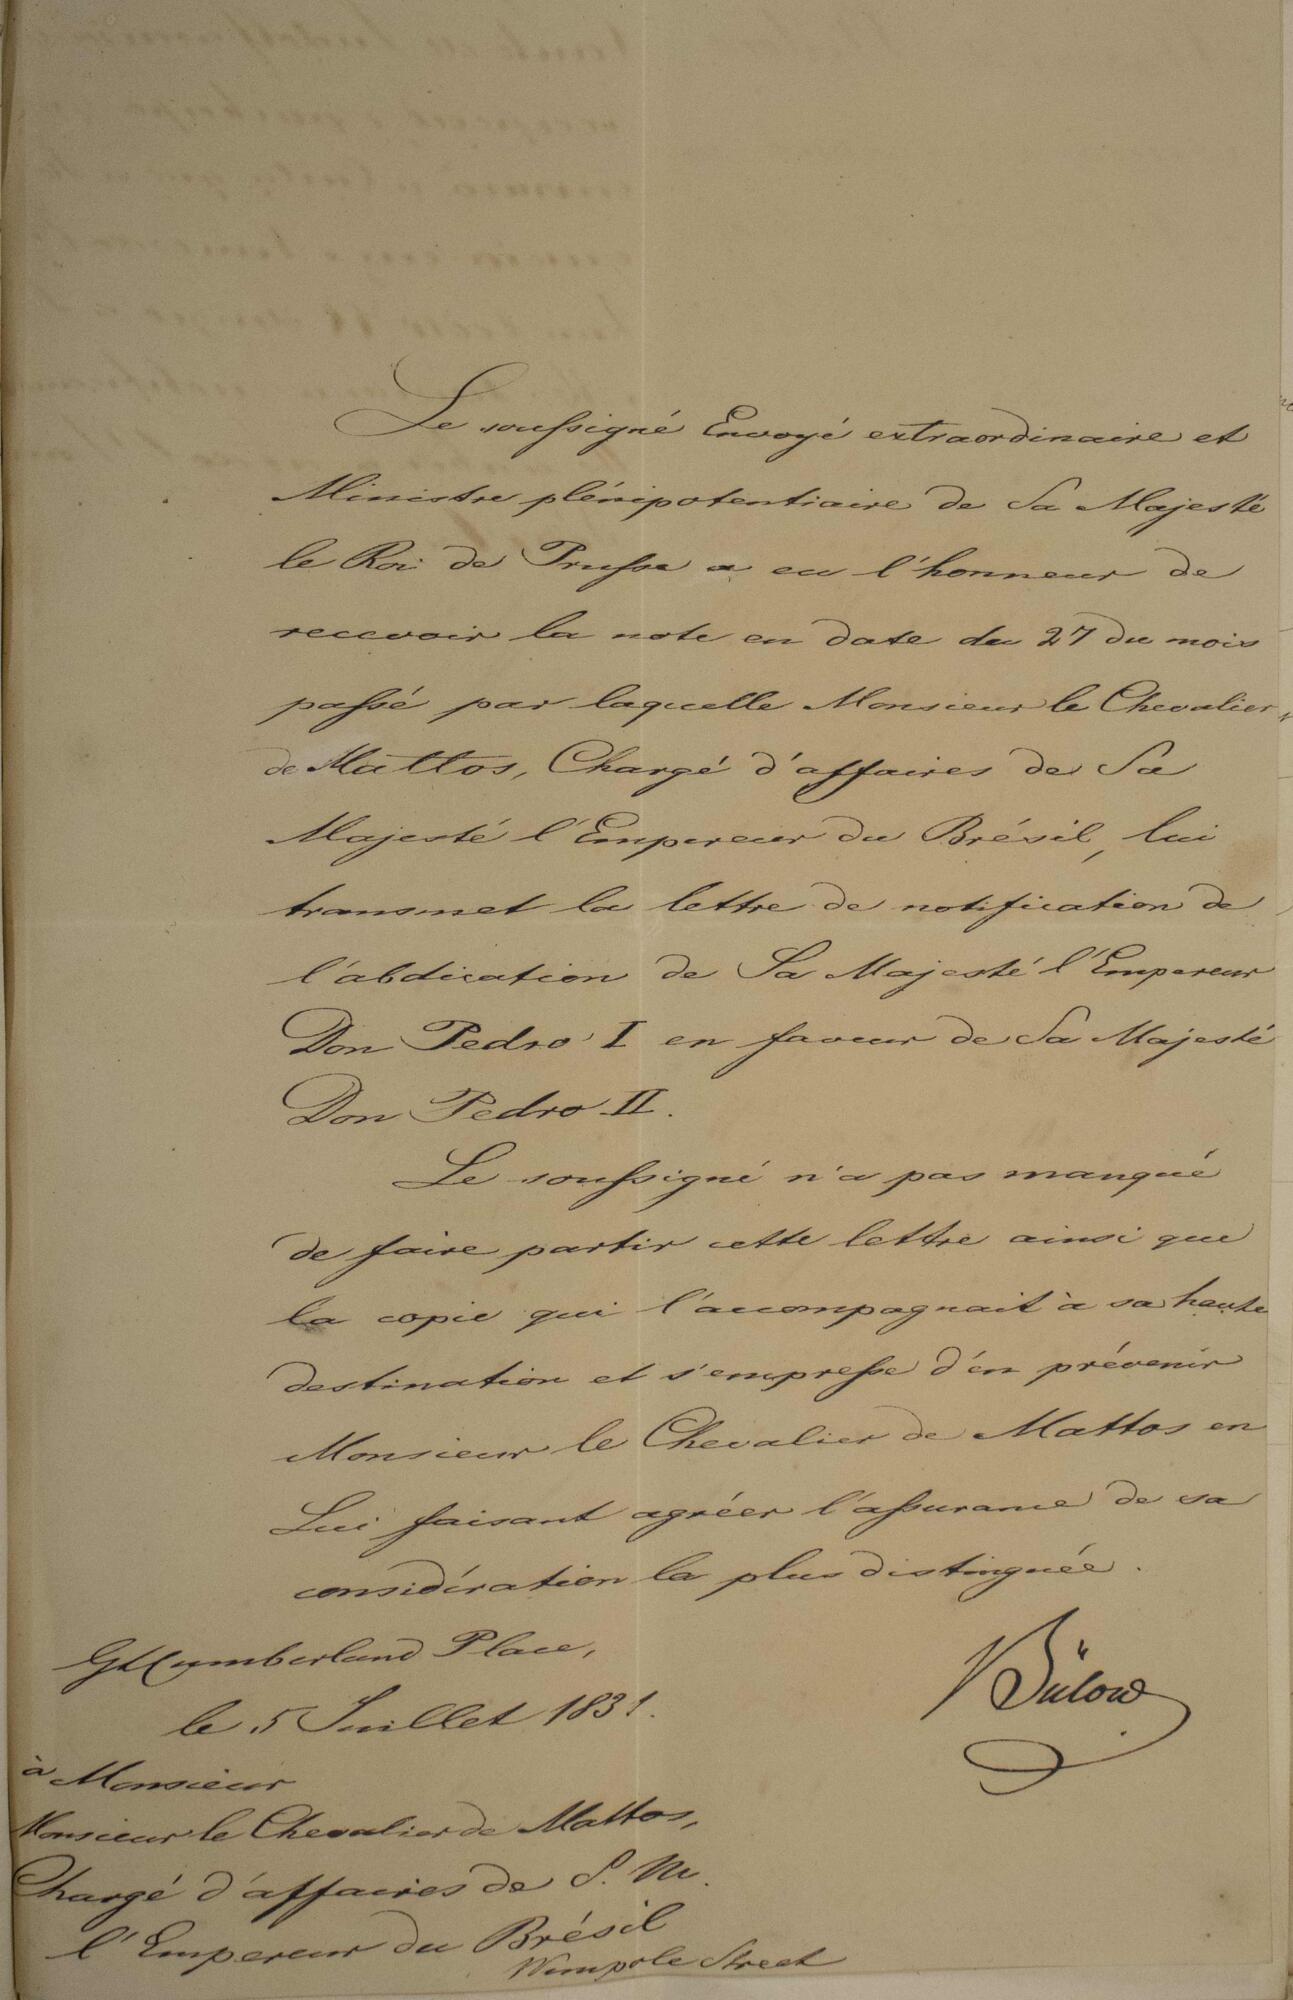 Le soussigné Envoyé extraordinaire et
Ministre plénipotentiaire de Sa Majesté
le Roi de Prusse a eu l'honneur de
recevoir la note en date du 27 du mois
passé par laquelle Monsieur le Chevalier
de Mattos, Chargé d'affaires de Sa
Majesté l'Empereur du Brésil, lui
transmet la lettre de notification de
l'abdication de Sa Majesté l'Empereur
Don Pedro I en faveur de Sa Majesté
Don Pedro II.
Le soussigné n'a pas manqué
de faire partir cette lettre ainsi que
la copie qui l'accompagnait à sa haute
destination et s'empresse d'en prévenir
Monsieur le Chevalier de Mattos en
Lui faisant agréer l'assurance de sa
considération la plus distinguée.
Bülow
Gt Cumberland Place,
le 5 Juillet 1831.
à Monsieur
Monsieur le Chevalier de Mattos,
Chargé d'affaires de S. M.
l'Empereur du Brésil
Wimpole Street